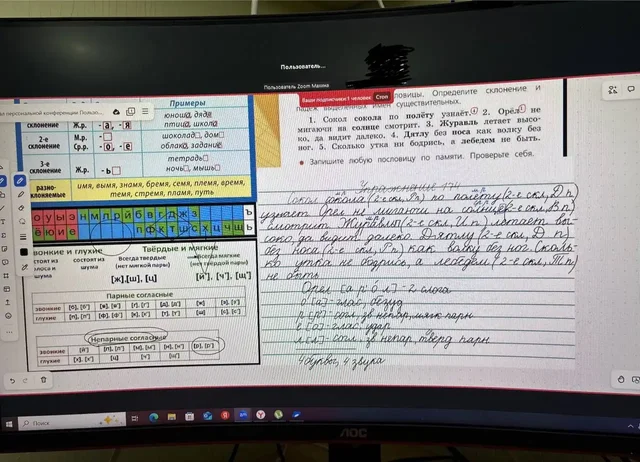 Пользователь...
Пользователь Zoom Махина
Ваши подписчики 1 человек Стоп
ловицы. Определите склонение и
падеж выделенных имён существительных.
1. Сокол сокола по полёту узнаёт. 2. Орёл не
мигаючи на солнце смотрит. 3. Журавль летает высо-
ко, да видит далеко. 4. Дятлу без носа как волку без
ног. 5. Сколько утка ни бодрись, а лебедем не быть.
Запишите любую пословицу по памяти. Проверьте себя.
Упражнение 174
Сокол сокола (2-е скл, Рп) по полёту (2-е скл, Д п)
узнаёт. Орёл не мигаючи на солнце (2-е скл, В п)
смотрит. Журавль (2-е скл, И п) летает вы-
соко, да видит далеко. Дятлу (2-е скл, Д п)
без носа (2-е скл, Рп) как волку без ног. Сколь-
ко утка не бодрись, а лебедем (2-е скл, Т п)
не быть
Орёл [а р' о л] - 2 слога
о [а] - глас, безуд
р [р'] - согл, зв непар, мягк парн
ё [о] - глас, удар
л [л] - согл, зв непар, тверд парн
4 буквы, 4 звука
Примеры
склонение Ж.р. -а, -я юноша, дядя
птица, школа
2-е склонение М.р. Ср.р. -о, -е шоколад, дом
облако, задание
3-е склонение Ж.р. -ь тетрадь
ночь, мышь
разно-склоняемые имя, вымя, знамя, бремя, семя, племя, время,
темя, стремя, пламя, путь
о у ы э а н м л р й б в г д ж з Ъ
ё ю и е п ф к т ш с х ц ч щ Ь
звонкие и глухие Твёрдые и мягкие
состоят из голоса и шума
состоят из шума
Всегда твердые (нет мягкой пары)
Всегда мягкие (нет твёрдой пары)
[ж], [ш], [ц] [й'], [ч'], [щ']
Парные согласные
звонкие [б], [б'] [в], [в'] [г], [г'] [д], [д'] [ж] [з], [з']
глухие [п], [п'] [ф], [ф'] [к], [к'] [т], [т'] [ш] [с], [с']
Непарные согласные
звонкие [й'] [л], [л'] [м], [м'] [н], [н'] [р], [р']
глухие [х], [х'] [ц] [ч'] [щ']
Поиск
AOC